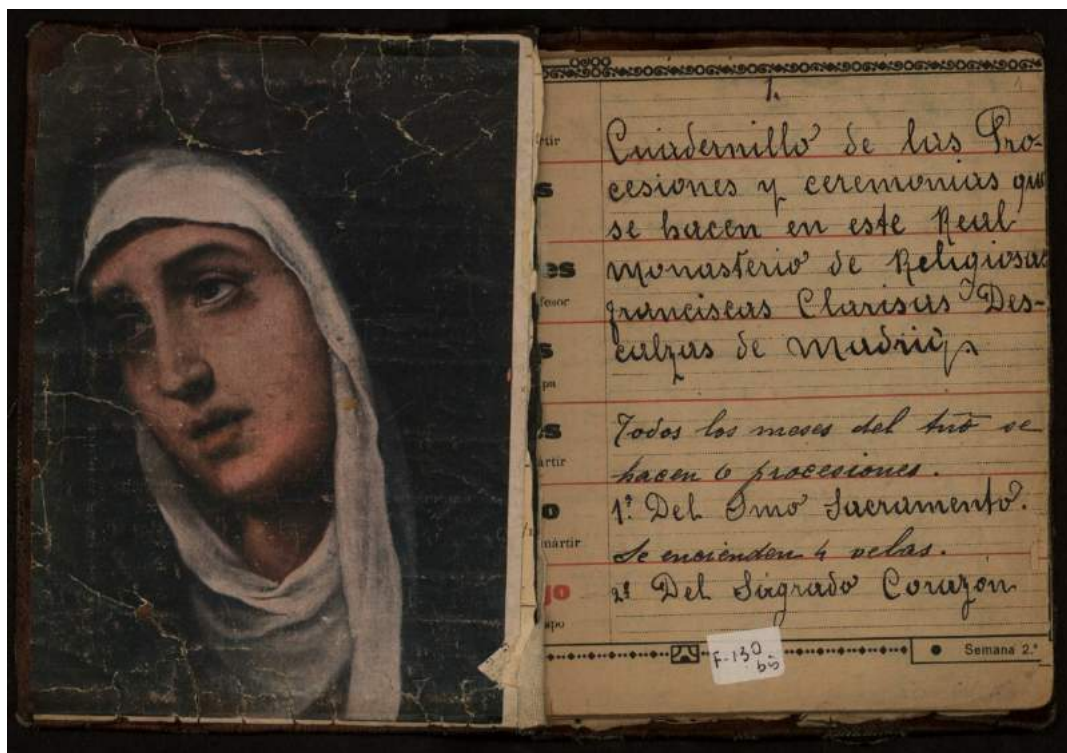 1.
Cuadernillo de las Pro-
cesiones y ceremonias que
se hacen en este Real
Monasterio de Religiosas
franciscas Clarisas Des-
calzas de Madrid.
Todos los meses del año se
hacen 6 procesiones.
1ª. Del Smo Sacramento.
Se encienden 4 velas.
2ª Del Sagrado Corazón
tir
s
es
fesor
s
pa
s
artir
o
mártir
jo
apo
F-130
bis
Semana 2.ª